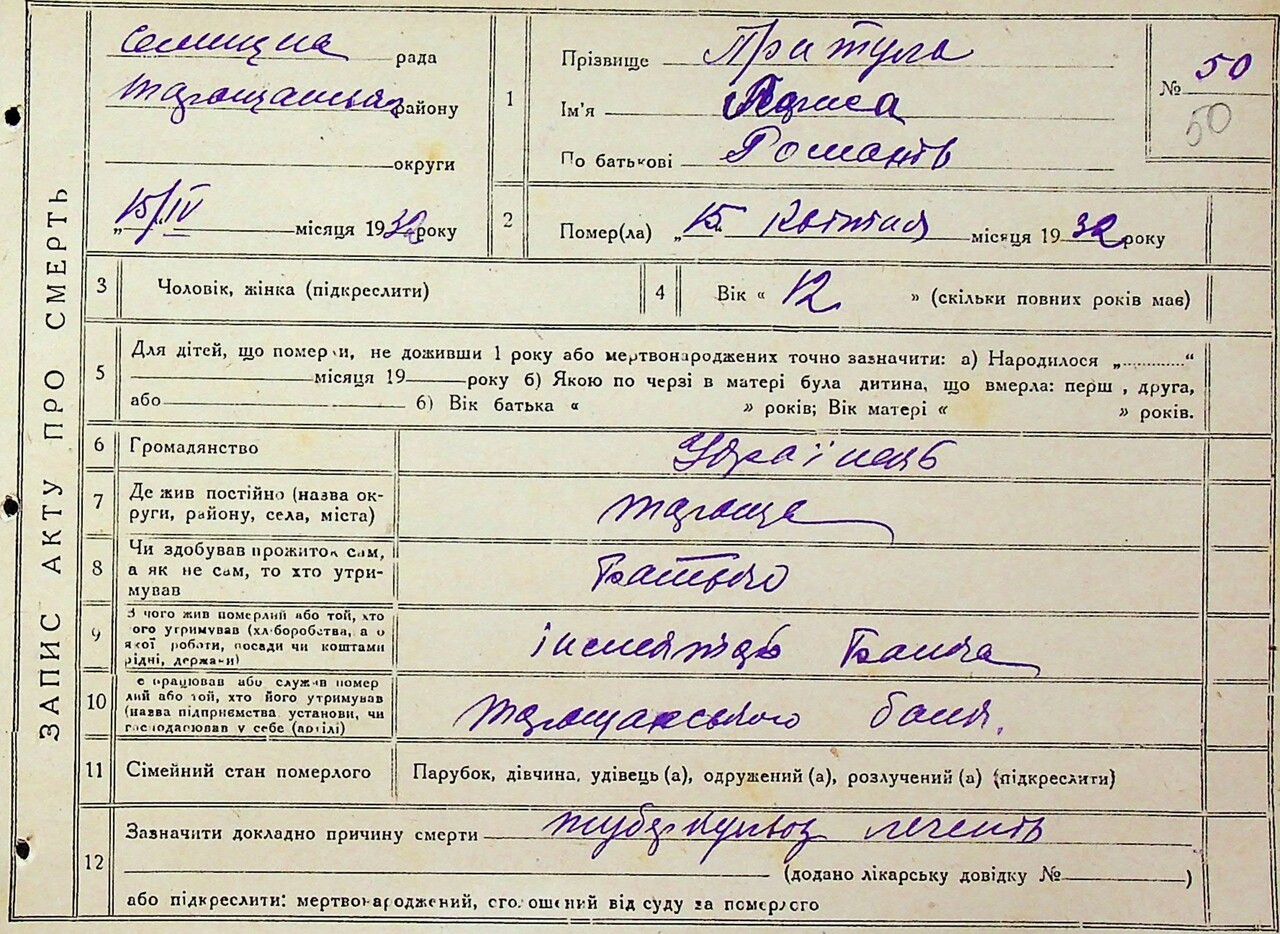 ЗАПИС АКТУ ПРО СМЕРТЬ
Селищна рада
Таращанськ району
округи
„15/IV місяця 1932 року
1
Прізвище Притула
Ім'я Лариса
По батькові Романів
№ 50
50
2
Помер(ла) „15" Квітня місяця 1932 року
3 Чоловік, жінка (підкреслити)
4 Вік « 12 » (скільки повних років мав)
5
Для дітей, що померли, не доживши 1 року або мертвонароджених точно зазначити: а) Народилося „............“
місяця 19 року б) Якою по черзі в матері була дитина, що вмерла: перш , друга,
або б) Вік батька « » років; Вік матері « » років.
6 Громадянство Українець
7
Де жив постійно (назва ок-
руги, району, села, міста)
Тараща
8
Чи здобував прожиток сам,
а як не сам, то хто утри-
мував
Батько
9
З чого жив померлий або той, хто
ого утримував (хл-боробства, а о
якої роботи, посади чи коштами
рідні, держави)
Банка
10
е працював або служив помер
лий або той, хто його утримував
(назва підприємства установи, чи
господарював у себе (артілі)
Таращанського банк.
11 Сімейний стан померлого
Парубок, дівчина, удівець (а), одружений (а), розлучений (а) (підкреслити)
12
Зазначити докладно причину смерти туберкульоз легенів
(додано лікарську довідку № )
або підкреслити: мертвонароджений, оголошений від суду за померлого